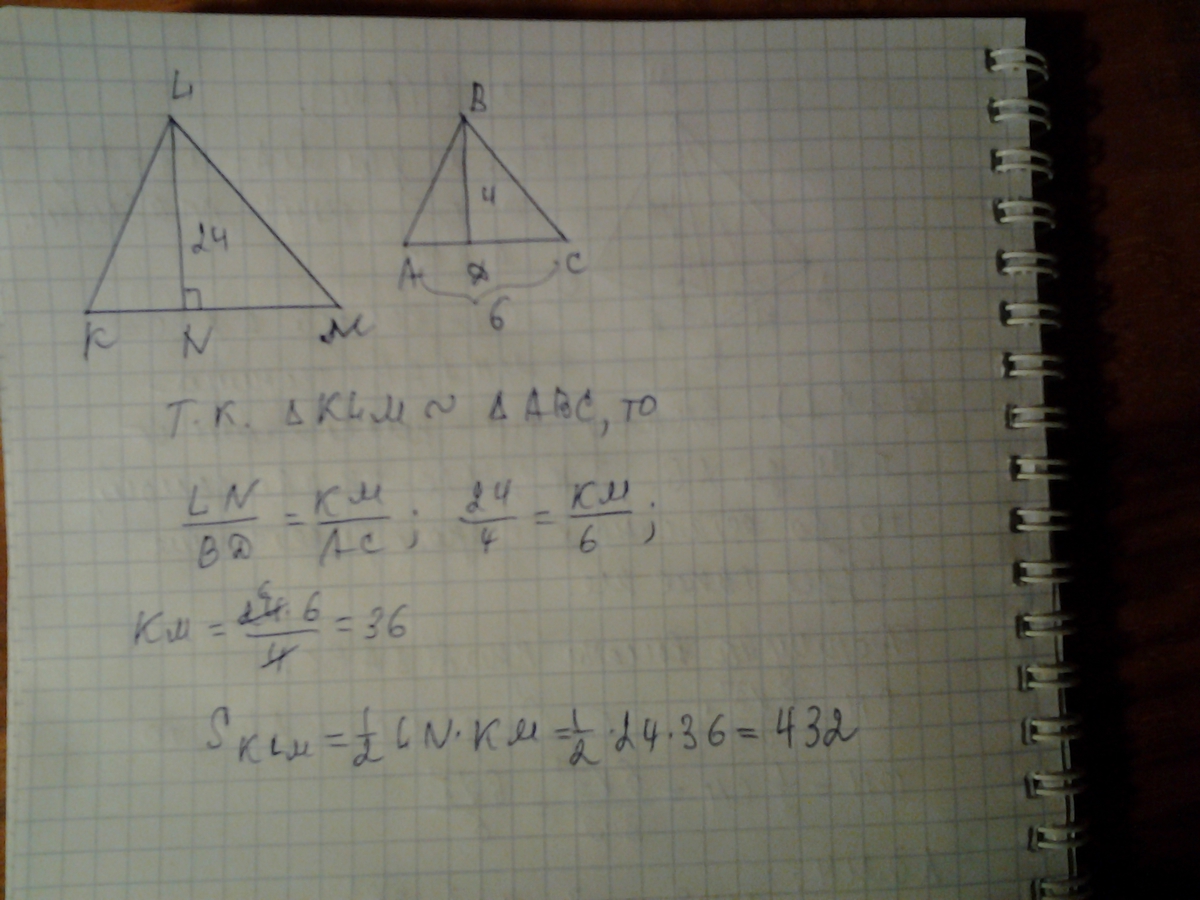 L B
24 4
A D C
K N M 6
Т.к. Δ KLM ~ Δ ABC, то
LN/BD = KM/AC; 24/4 = KM/6;
KM = 24·6/4 = 36
S KLM = 1/2 LN·KM = 1/2·24·36 = 432